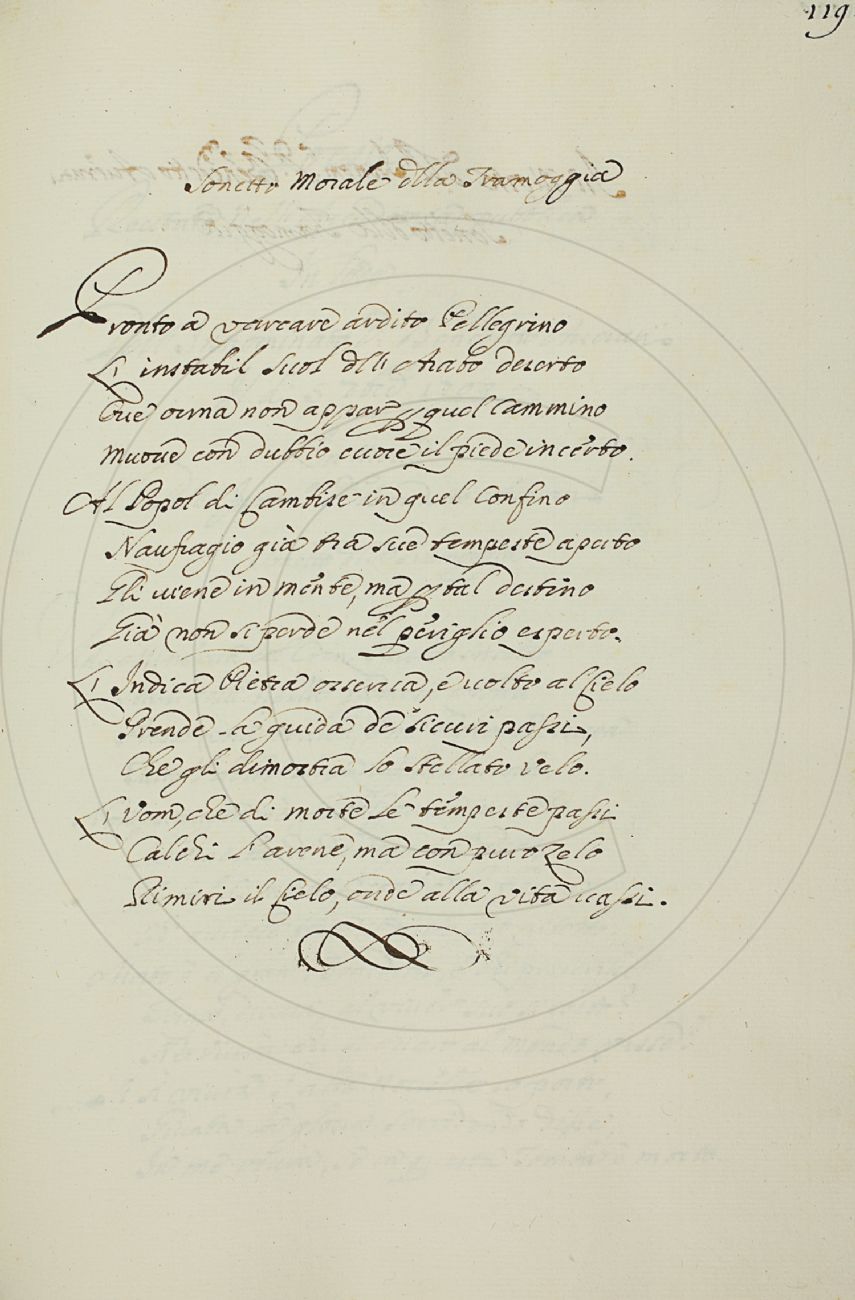 119
Sonetto Morale dlla Tramoggia
Pronto a varcare ardito Pellegrino
L' instabil suol dll' Arabo deserto
Ove orma non appar p quel Cammino
Muove con dubbio cuore il piede incerto.
Al Popol di Cambise in quel confino
Naufragio già tra sue tempeste aperto
Gli viene in mente, ma p tal destino
Già non si perde nel periglio esperto.
L' Indica Pietra osserva, e volto al Cielo
Prende la guida de sicuri passi,
Che gli dimostra lo stellato velo.
L' vom, che di morte le tempeste passi
Calchi l' arene, ma con puro zelo
Rimiri il Cielo, onde alla vita vassi.